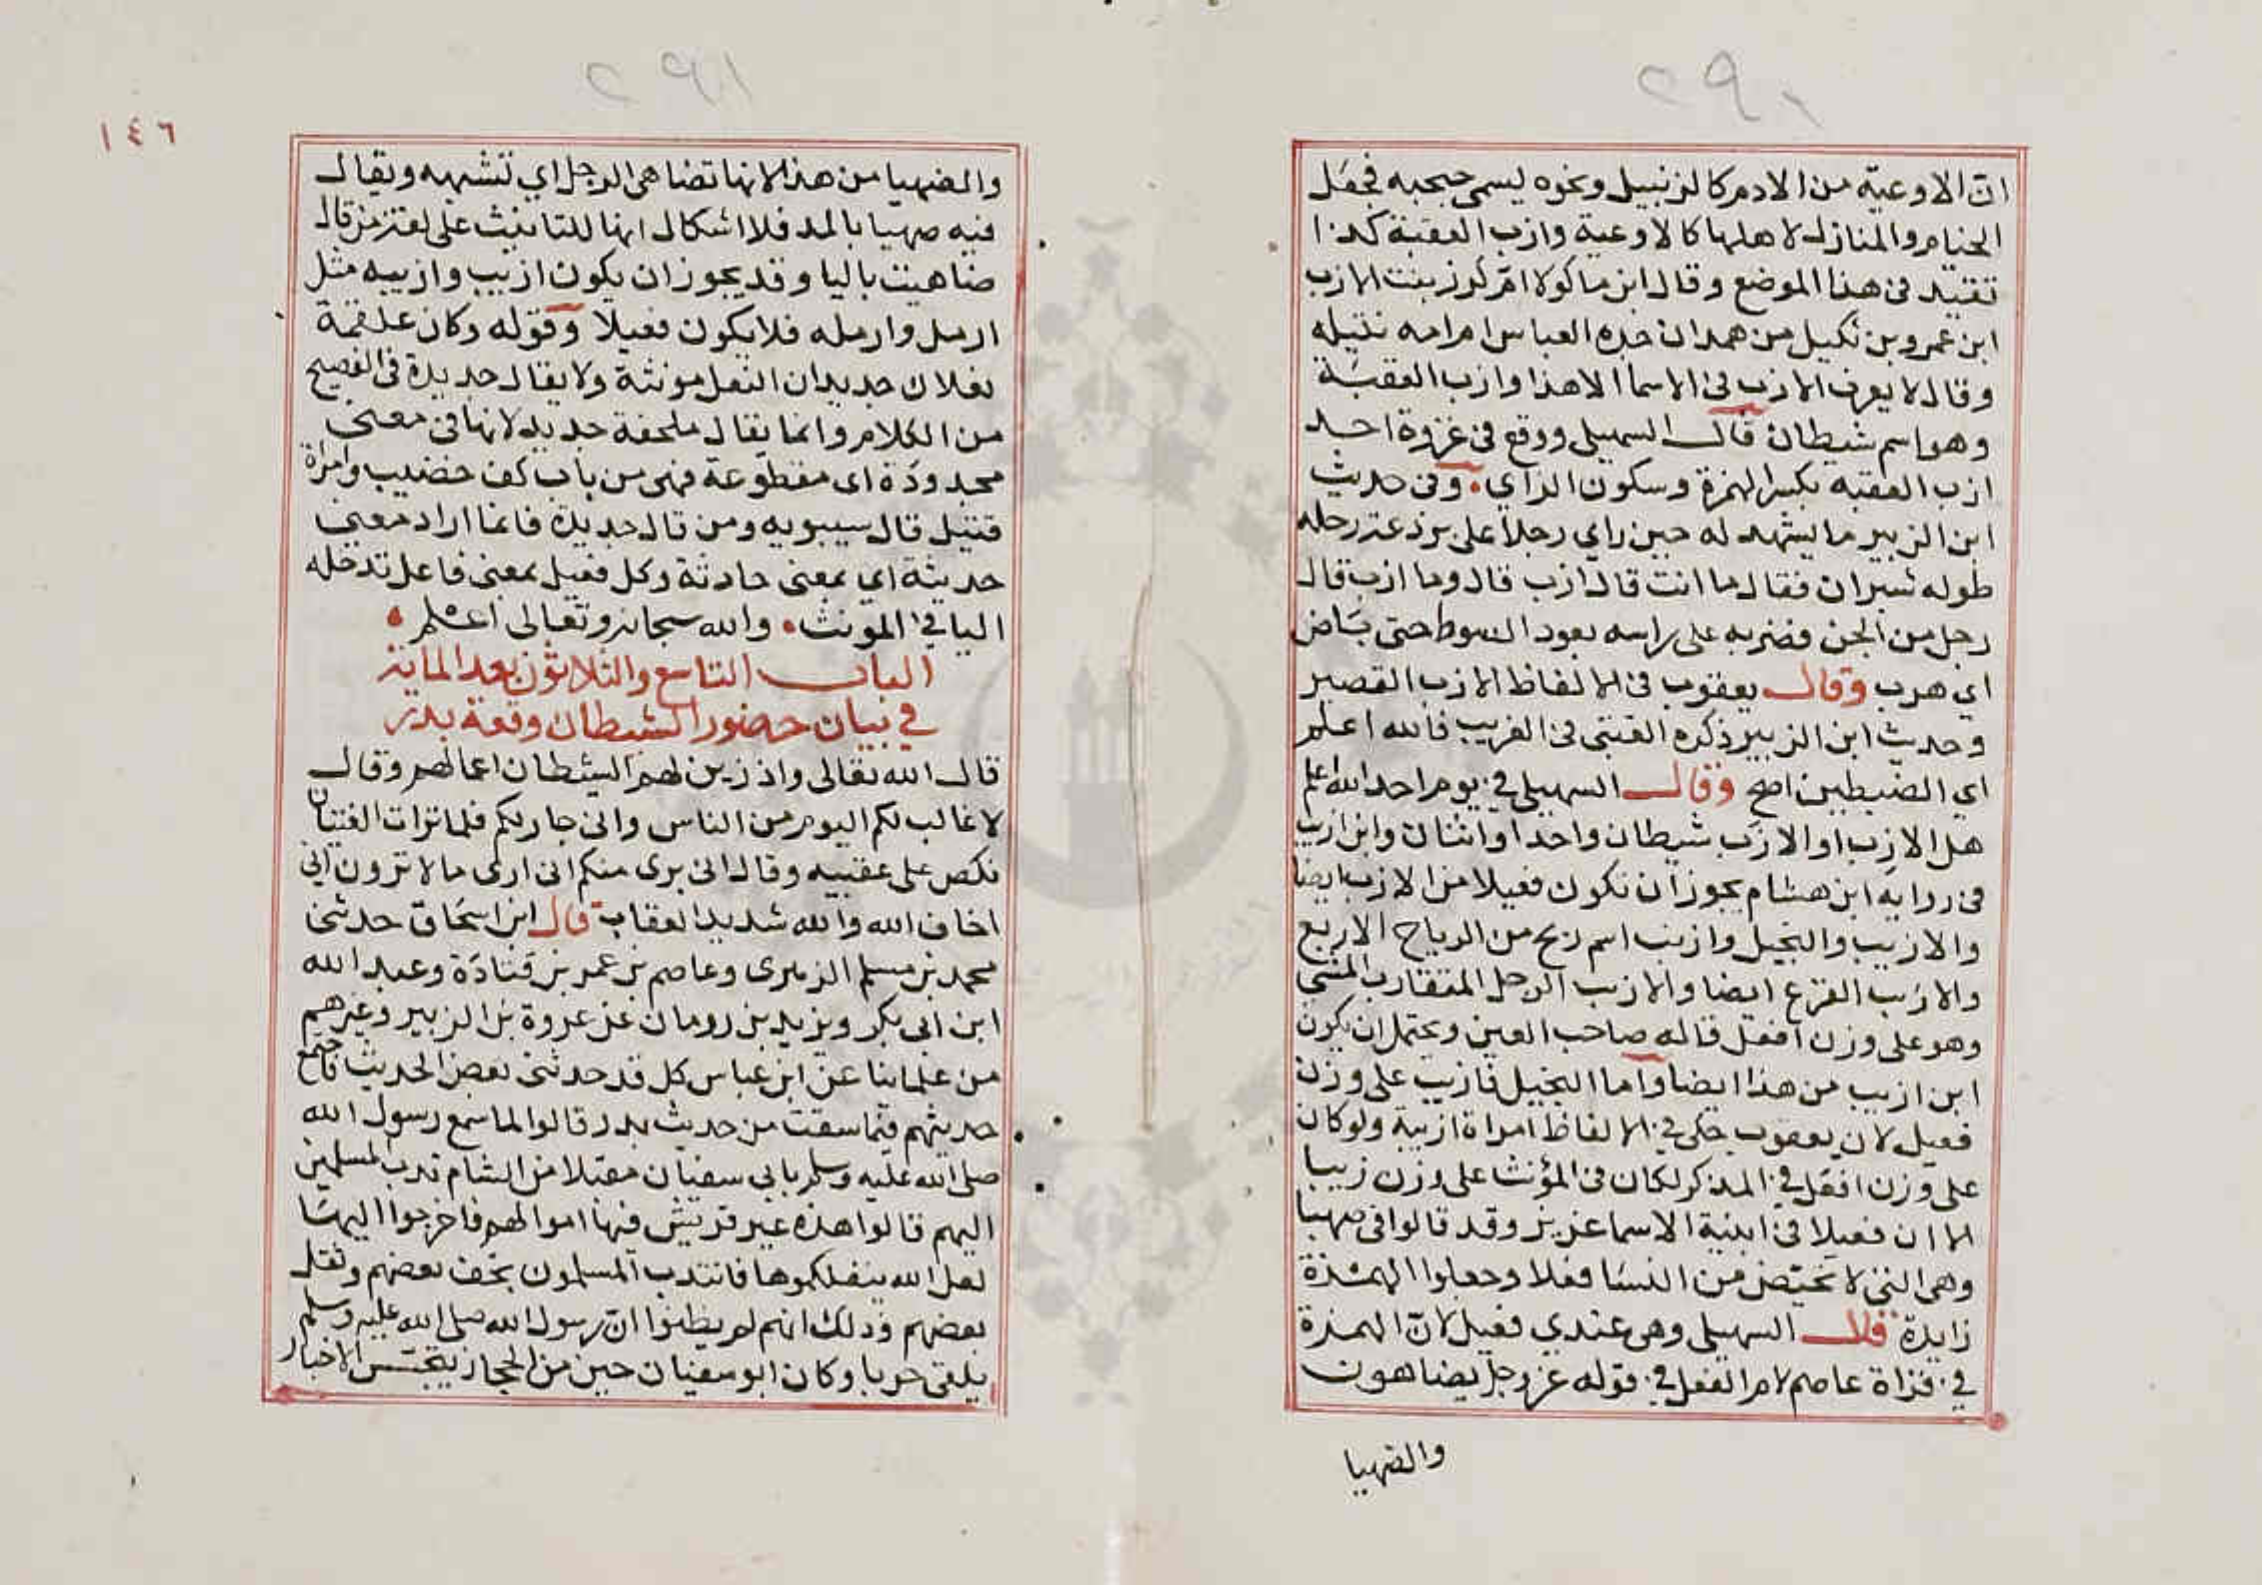 ان الاوعية من الادم كالزنبيل ونحوه يسمى جبجبه فجعل
الخيام والمنازل لاهلها كالاوعية وازب العقبة كذا
تقيد في هذا الموضع وقال ابن ماكولا ام كرز بنت الازب
ابن عمرو بن نكيل من همدان جده العباس ام امه نتيله
وقال لا يعرف الازب في الاسما الا هذا وازب العقبة
وهو اسم شيطان قال السهيلي ووقع في غزوة احد
ازب العقبه بكسر الهمزة وسكون الزاي وفي حديث
ابن الزبير ما يشهد له حين راي رجلا على برذعة رحله
طوله شبران فقال ما انت قال ازب قال وما ازب قال
رجل من الجن فضربه على راسه بعود السوط حتى باص
اي هرب وقال يعقوب في الالفاظ الازب القصير
وحديث ابن الزبير ذكره القتبي في الغريب فالله اعلم
اي الضبطين اصح وقال السهيلي في يوم احد الله اعلم
هل الازب او الازب شيطان واحد او اثنان وابن ازيب
في رواية ابن هشام يجوز ان نكون فعيلا من الازب ايضا
والازيب والبخيل وازيب اسم ريح من الرياح الاربع
والازيب الفزع ايضا والازيب الرجل المتقارب المشي
وهو على وزن افعل قاله صاحب العين ويحتمل ان يكون
ابن ازيب من هذا ايضا واما البخيل فازيب على وزن
فعيل لان يعقوب حكى في الالفاظ امراة ازيبة ولو كان
على وزن افعل في المذكر لكان في المؤنث على وزن زيبا
الا ان فعيلا في ابنية الاسما عزيز وقد قالوا في ضهيا
وهي التي لا تحيض من النسا فعلا وجعلوا الهمزة
زايدة قال السهيلي وهي عندي فعيل لان الهمزة
في قراة عاصم لام الفعل في قوله عز وجل يضاهون
والضهيا
١٤٦
والضهيا من هذا لانها تضاهي الرجل اي تشبهه ويقال
فيه ضهيا بالمد فلا اشكال انها للتانيث على لغة من قال
ضاهيت باليا وقد يجوز ان يكون ازيب وازيبه مثل
ارمل وارمله فلا يكون فعيلا وقوله وكان علقمة
نعلان جديدان النعل مونثة ولا يقال جديدة في الفصيح
من الكلام وانما يقال ملحفة جديد لانها في معنى
مجدودة اى مقطوعة فهى من باب كف خضيب وامراة
قتيل قال سيبويه ومن قال جديدة فانما اراد معنى
حديثة اي بمعنى حادثة وكل فعيل بمعنى فاعل تدخله
اليا في المونث والله سبحانه وتعالى اعلم
الباب التاسع والثلاثون بعد الماية
في بيان حضور الشيطان وقعة بدر
قال الله تعالى واذ زين لهم الشيطان اعمالهم وقال
لا غالب لكم اليوم من الناس واني جار لكم فلما تراءت الفئتان
نكص على عقبيه وقال انى برى منكم انى ارى ما لا ترون اني
اخاف الله والله شديد العقاب قال ابن اسحاق حدثني
محمد بن مسلم الزهرى وعاصم بن عمر بن قتادة وعبد الله
ابن ابى بكر ويزيد بن رومان عن عروة بن الزبير وغيرهم
من علماينا عن ابن عباس كل قد حدثنى بعض الحديث فاجتمع
حديثهم فيما سقت من حديث بدر قالوا لما سمع رسول الله
صلى الله عليه وسلم بابي سفيان مقبلا من الشام ندب المسلمين
اليهم قالوا هذه عير قريش فيها اموالهم فاخرجوا اليها
لعل الله ينفلكموها فانتدب المسلمون بخف بعضهم وثقل
بعضهم وذلك انهم لم يظنوا ان رسول الله صلى الله عليه وسلم
يلقى حربا وكان ابو سفيان حين من الحجاز يتجسس الاخبار